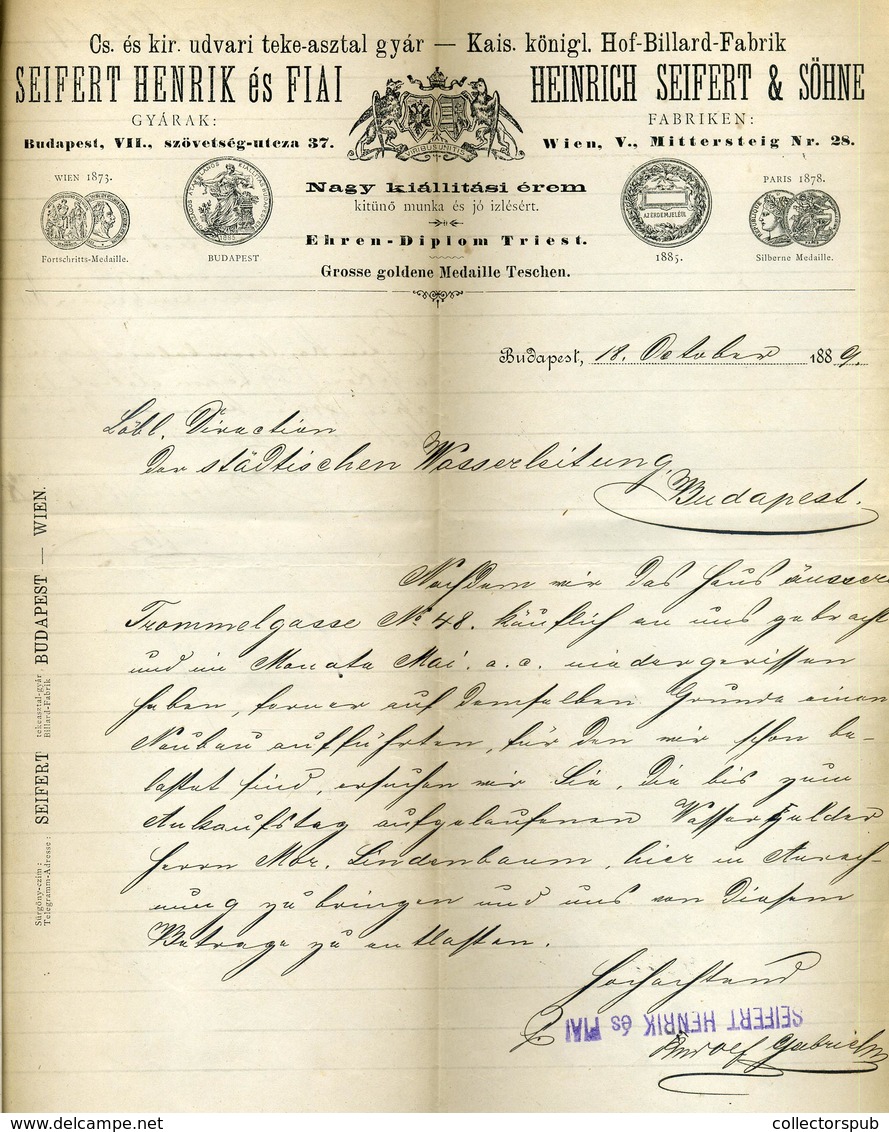 Cs. és kir. udvari teke-asztal gyár — Kais. königl. Hof-Billard-Fabrik
SEIFERT HENRIK és FIAI
HEINRICH SEIFERT & SÖHNE
GYÁRAK:
FABRIKEN:
Budapest, VII., szövetség-utcza 37.
Wien, V., Mittersteig Nr. 28.
VIRIBUS UNITIS
WIEN 1873.
Fortschritts-Medaille.
1885
BUDAPEST
Nagy kiállitási érem
kitünő munka és jó izlésért.
Ehren-Diplom Triest.
Grosse goldene Medaille Teschen.
AZ ÉRDEM JELÉÜL
1885.
PARIS 1878.
Silberne Medaille.
Budapest, 18. October 1889.
Löbl. Direction
der städtischen Wasserleitung
Budapest.
Nachdem wir das Haus äussere
Trommelgasse No 48. käuflich an uns gebracht
und im Monate Mai a. c. niedergerissen
haben, ferner auf demselben Grunde einen
Neubau aufführten, für den wir schon be-
lastet sind, ersuchen wir Sie, die bis zum
Ankaufstag aufgelaufenen Wassergelder
Herrn Mor. Lindenbaum, hier in Anrech-
nung zu bringen und uns von diesem
Betrage zu entlasten.
Hochachtend
SEIFERT HENRIK és FIAI
Rudolf
Sürgöny-czim:
Telegramm-Adresse:
SEIFERT
tekeasztal-gyár
Billard-Fabrik
BUDAPEST — WIEN.
collectorspub